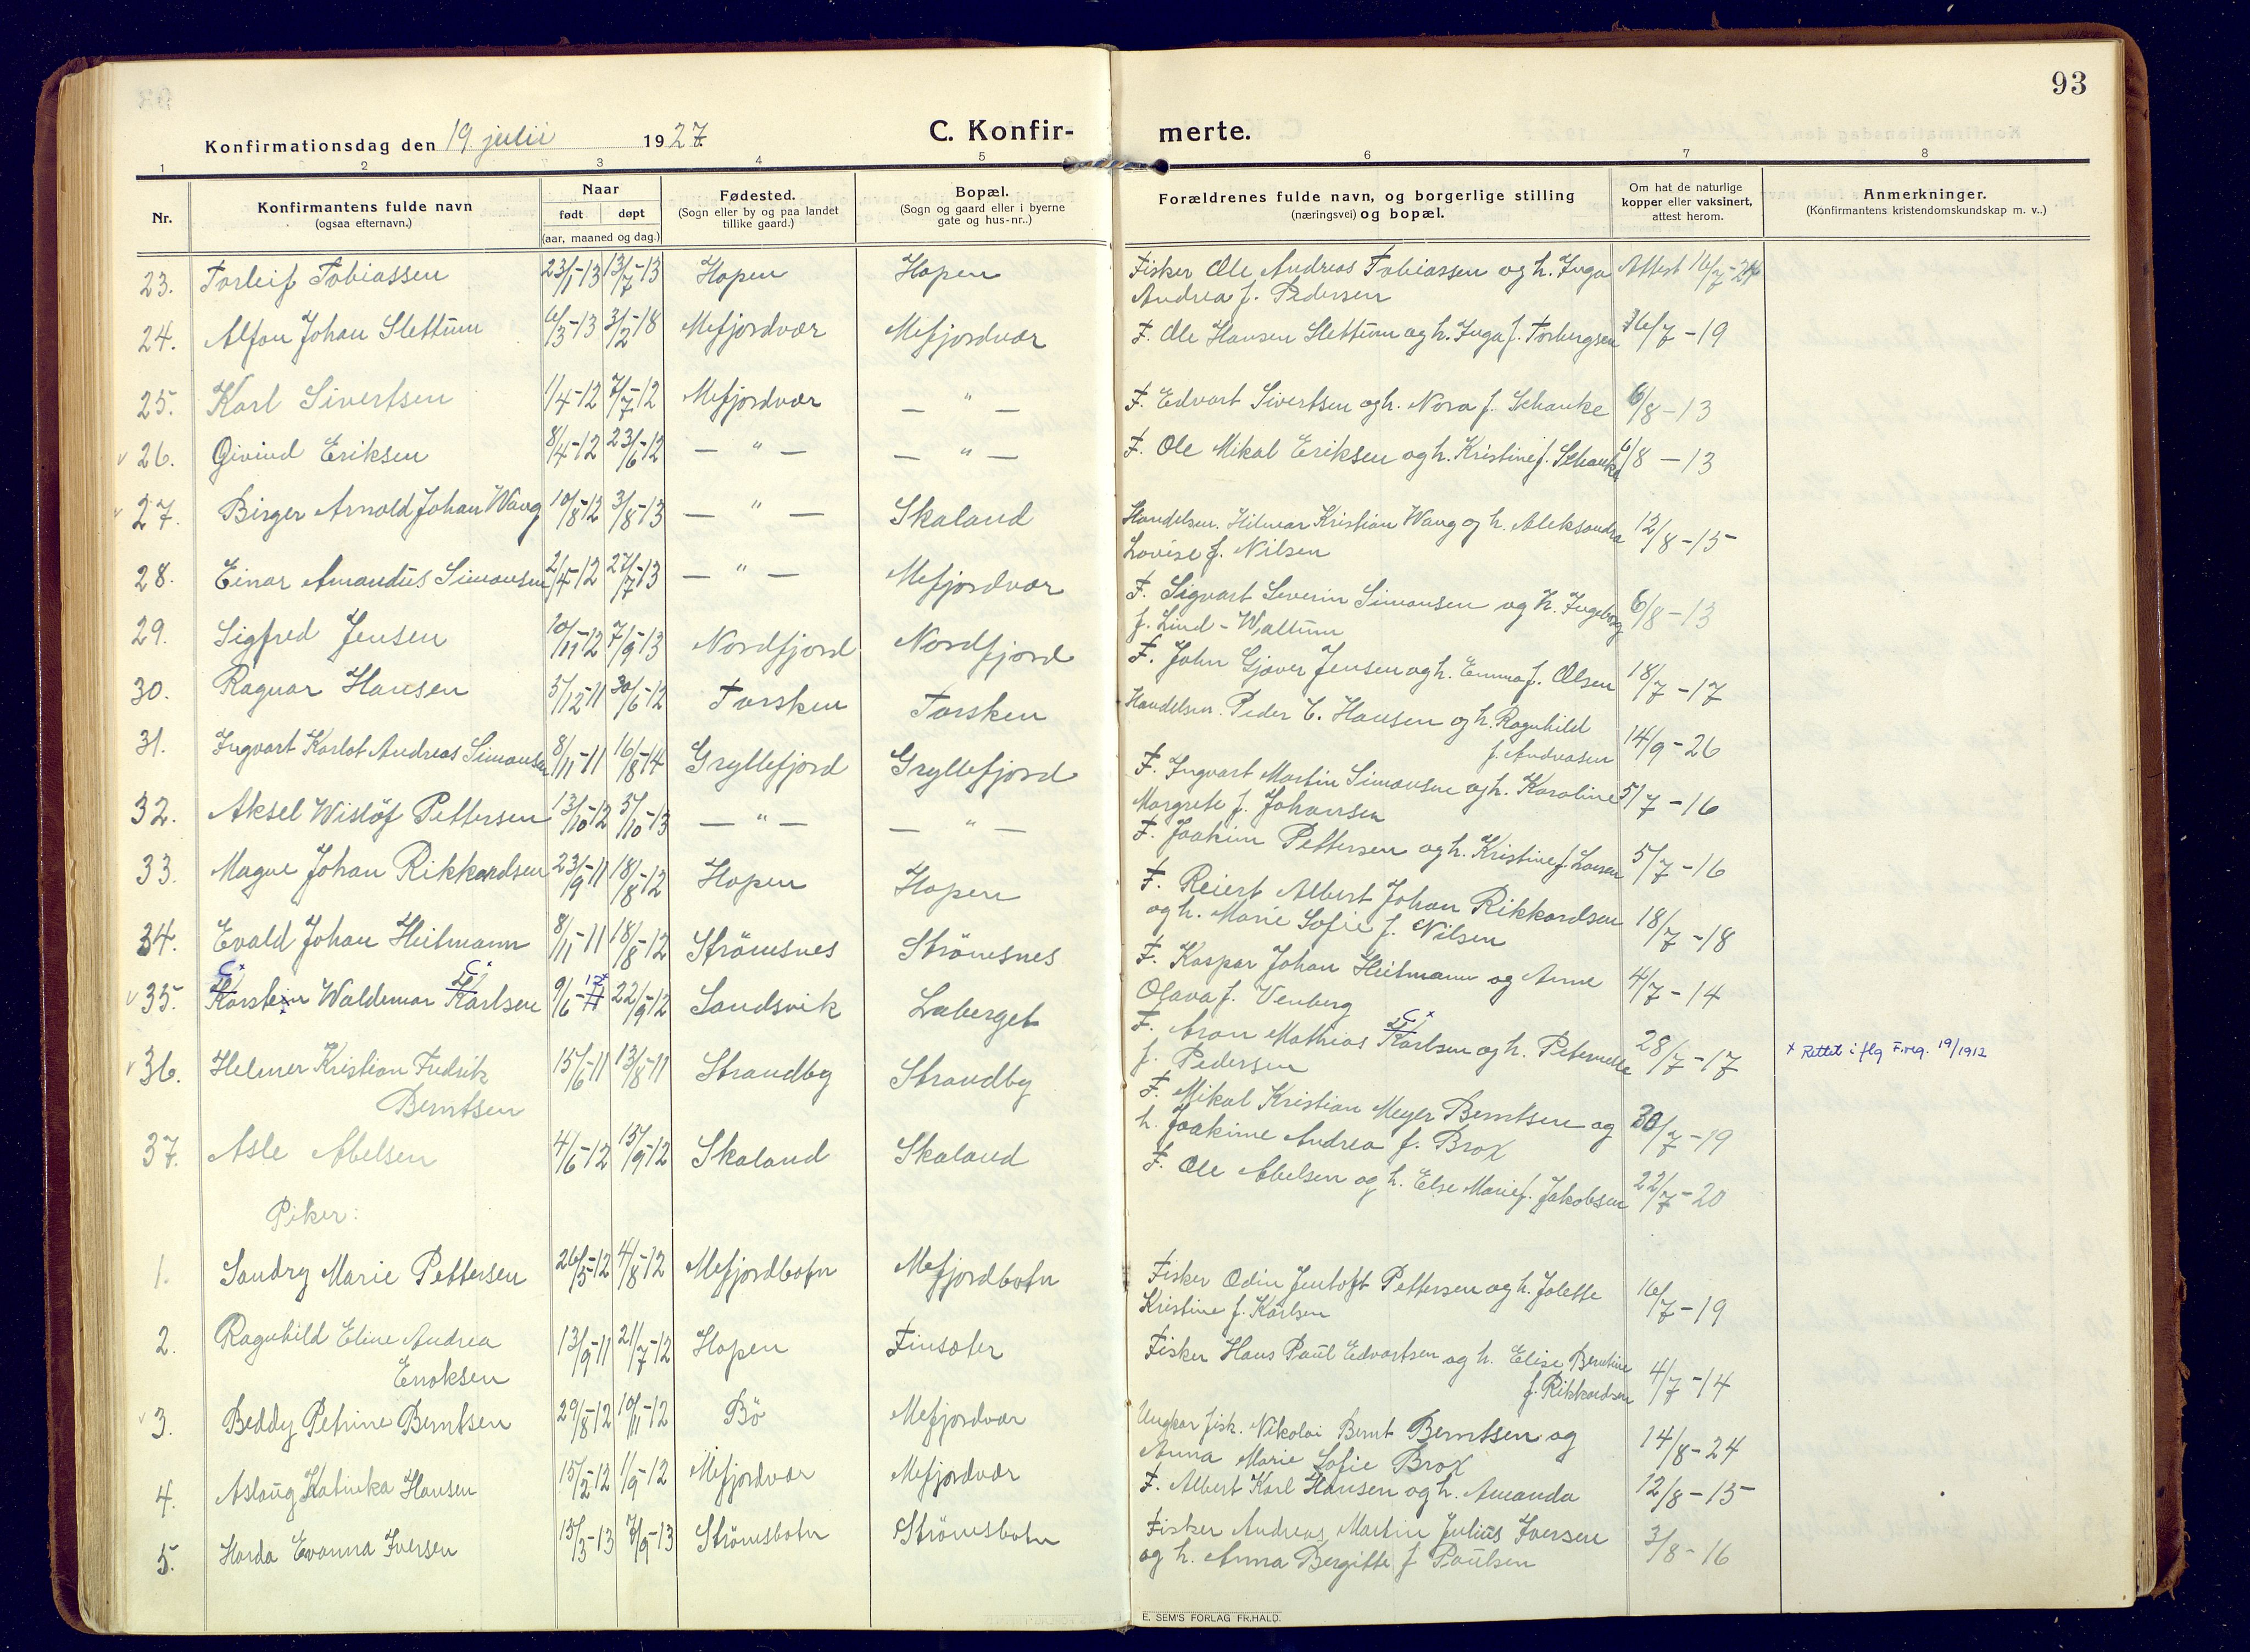 93
Konfirmationsdag den 19. julii 1927 C. Konfir- merte.
1 2 3 4 5 6 7 8
Nr. Konfirmantens fulde navn (ogsaa efternavn.) Naar født døpt (aar, maaned og dag.) Fødested. (Sogn eller by og paa landet tillike gaard.) Bopæl. (Sogn og gaard eller i byerne gate og hus-nr..) Forældrenes fulde navn, og borgerlige stilling (næringsvei) og bopæl. Om hat de naturlige kopper eller vaksinert, attest herom. Anmerkninger. (Konfirmantens kristendomskundskap m. v..)
23. Torleif Tobiassen 23/1-13 13/7-13 Hopen Hopen Fisker Ole Andreas Tobiassen og h. Inga Attest 16/7-24
Andrea f. Pedersen
24. Alfon Johan Slettum 6/3-13 3/2-18 Mefjordvær Mefjordvær F. Ole Hansen Slettum og h. Inga f. Torbergsen 16/7-19
25. Karl Sivertsen 1/4-12 7/7-12 Mefjordvær — " — F. Edvart Sivertsen og h. Nora f. Schanke 6/8-13
26. Øivind Eriksen 8/4-12 23/6-12 — " — — " — F. Ole Mikal Eriksen og h. Kristine f. Schanke 6/8-13
27. Birger Arnold Johan Wang 10/8-12 3/8-13 — " — Skaland Handelsm. Hilmar Kristian Wang og h. Aleksandra 12/8-15
Lovise f. Nilsen
28. Einar Amandus Simonsen 2/4-12 27/7-13 — " — Mefjordvær F. Sigvart Severin Simonsen og h. Ingeborg 6/8-13
f. Lind-Wattum
29. Sigfred Jensen 10/11-12 7/9-13 Nordfjord Nordfjord F. John Gjæver Jensen og h. Emma f. Olsen 18/7-17
30. Ragnar Hansen 5/12-11 30/6-12 Torsken Torsken Handelsm. Peder C. Hansen og h. Ragnhild
f. Andreasen 14/9-26
31. Ingvart Karlot Andreas Simonsen 8/11-11 16/8-14 Gryllefjord Gryllefjord F. Ingvart Martin Simonsen og h. Karoline 5/7-16
Margrete f. Johansen
32. Aksel Wislöf Pettersen 13/10-12 5/10-13 — " — — " — F. Joakim Pettersen og h. Kristine f. Larsen 5/7-16
33. Magne Johan Rikkardsen 23/9-11 18/8-12 Hopen Hopen F. Reiert Albert Johan Rikkardsen 18/7-18
og h. Marie Sofie f. Nilsen
34. Evald Johan Heitmann 8/11-11 18/8-12 Strömsnes Strömsnes F. Kaspar Johan Heitmann og Anne 4/7-14
Olava f. Venberg
35. Karstein Waldemar Karlsen 9/6-11 12* 22/9-12 Sandsvik Laberget F. Aron Mathias Karlsen og h. Peternelle 28/7-17 x Rettet i flg F.reg. 19/1912
f. Pedersen
36. Helmer Kristian Fredrik 15/6-11 13/8-11 Strandby Strandby F. Mikal Kristian Meyer Berntsen og 30/7-19
Berntsen h. Joakime Andrea f. Brox
37. Asle Abelsen 4/6-12 15/9-12 Skaland Skaland F. Ole Abelsen og h. Else Marie f. Jakobsen 22/7-20
Piker:
1. Sandry Marie Pettersen 26/5-12 4/8-12 Mefjordbotn Mefjordbotn Fisker Odin Jentoft Pettersen og h. Jolette 16/7-19
Kristine f. Karlsen
2. Ragnhild Eline Andrea 13/9-11 21/7-12 Hopen Finsæter Fisker Hans Paul Edvartsen og h. Elise Berntine 4/7-14
Enoksen f. Rikkardsen
3. Beddy Petrine Berntsen 29/8-12 10/11-12 Bö Mefjordvær Ungkar fisk. Nikolai Bernt Berntsen og 14/8-24
Anna Marie Sofie Brox
4. Aslaug Katinka Hansen 15/2-12 1/9-12 Mefjordvær Mefjordvær F. Albert Karl Hansen og h. Amanda 12/8-15
5. Harda Evanna Iversen 15/3-13 7/9-13 Strömsbotn Strömsbotn Fisker Andreas Martin Julius Iversen 3/8-16
og h. Anna Bergitte f. Paulsen
E. SEM'S FORLAG FR.HALD.